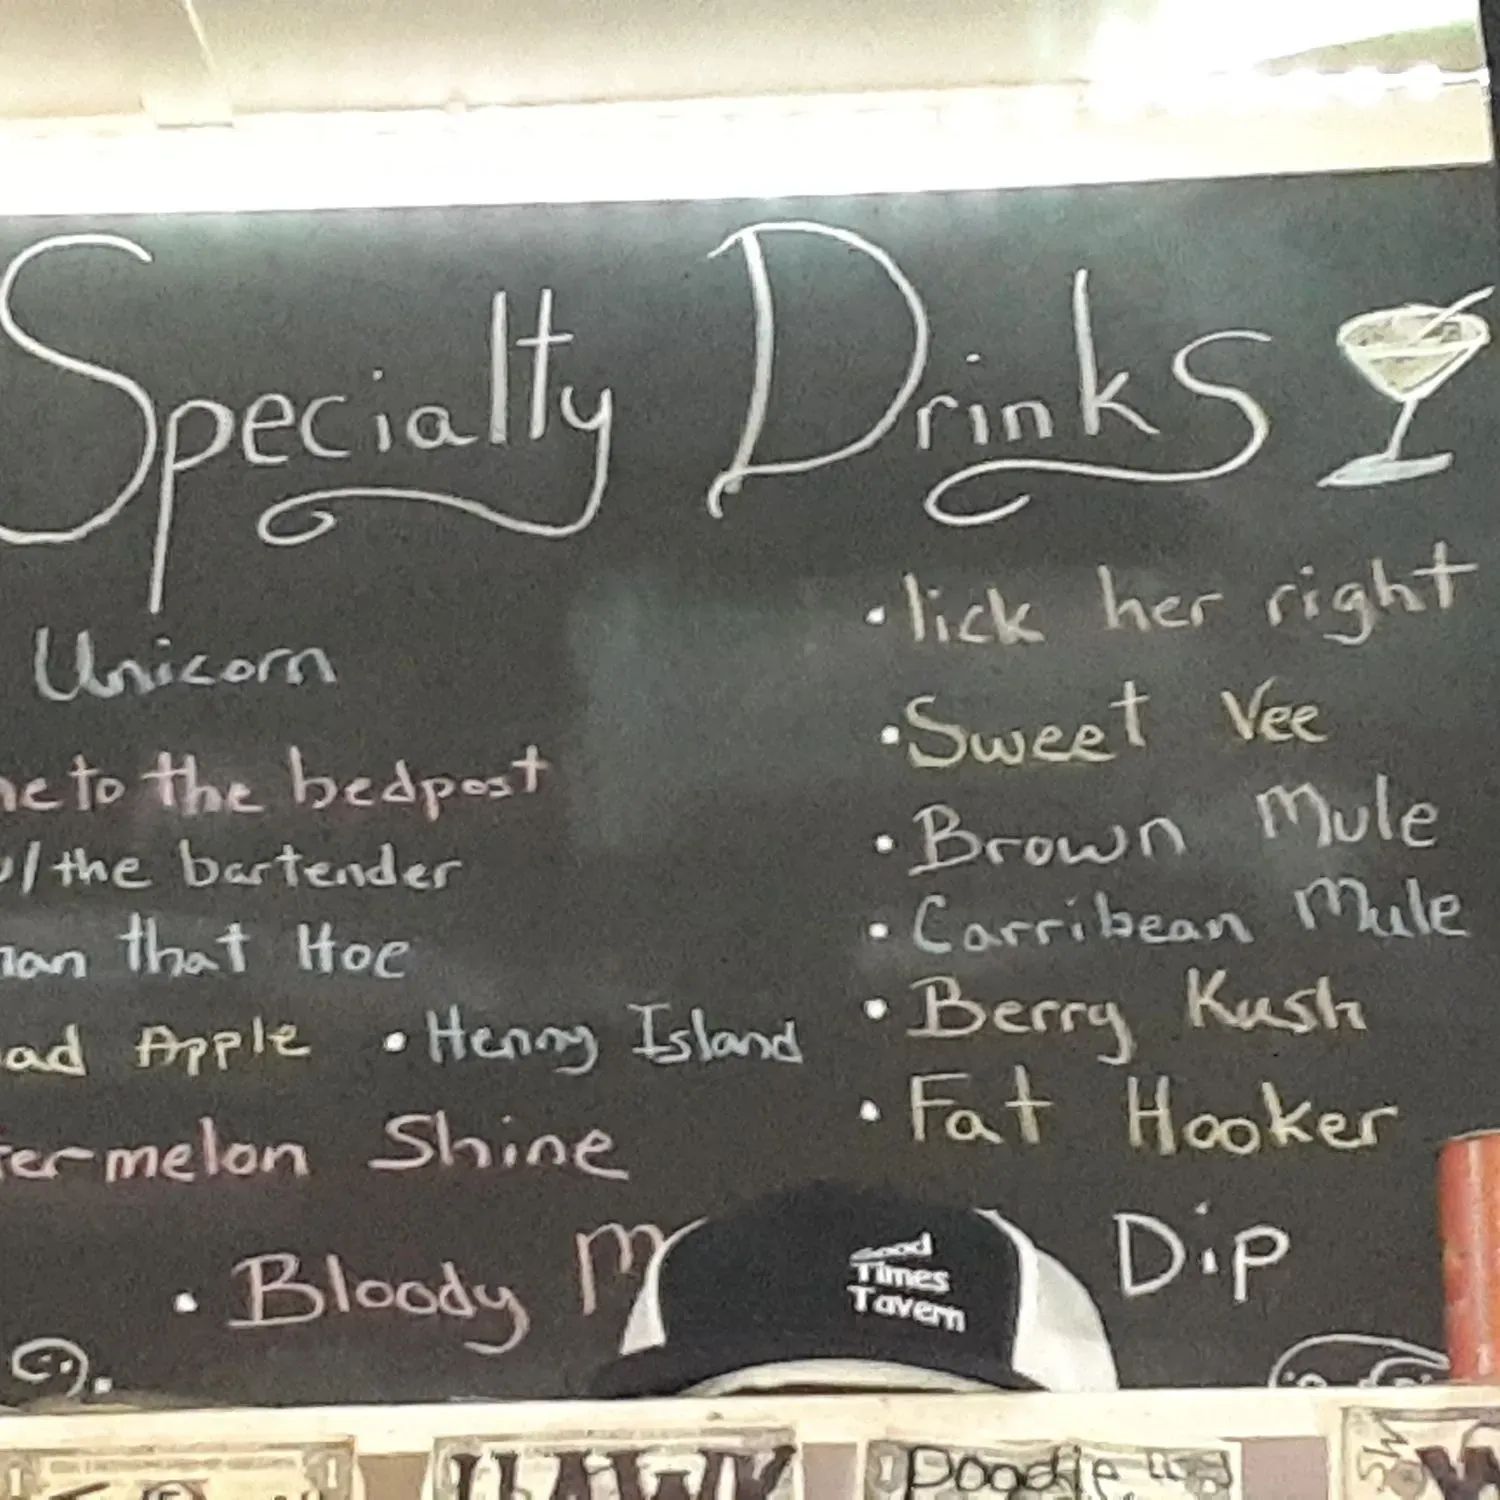 Specialty Drinks
Unicorn
to the bedpost
w/the bartender
that Hoe
Apple
• Henny Island
melon Shine
• Bloody
• lick her right
• Sweet Vee
• Brown Mule
• Carribean Mule
• Berry Kush
• Fat Hooker
Dip
Good
Times
Tavern
HAWK
Poodle